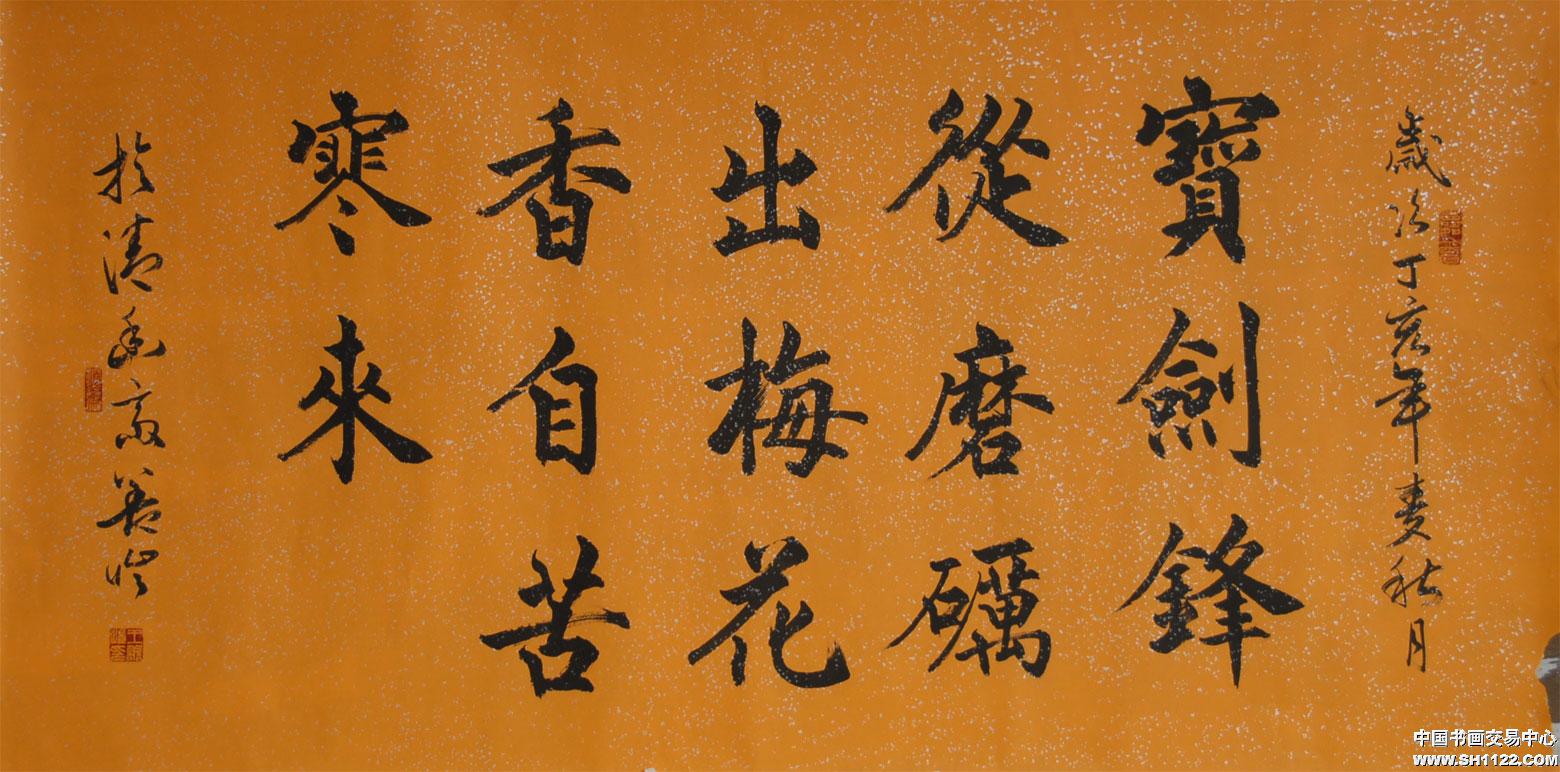 歲次丁亥年麦秋月
寶劍鋒
從磨礪
出梅花
香自苦
寒來
於清香齋
中国书画交易中心
WWW.SH1122.COM